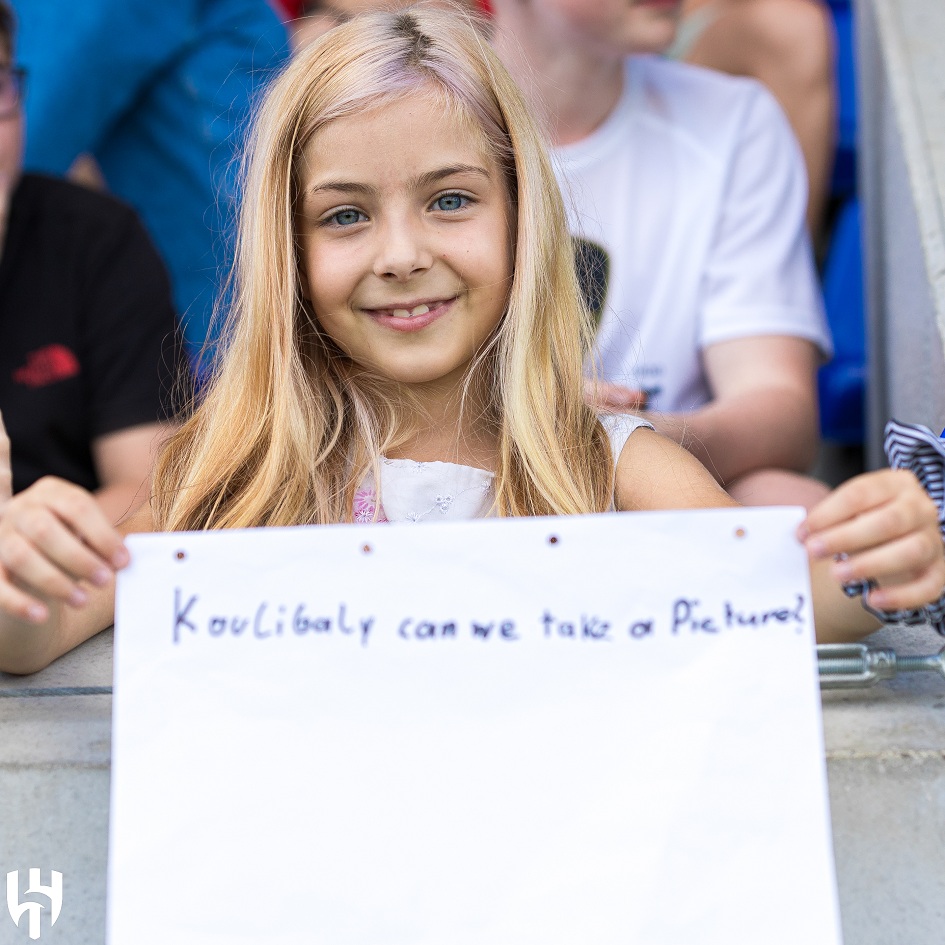 Koulibaly can we take a Picture?